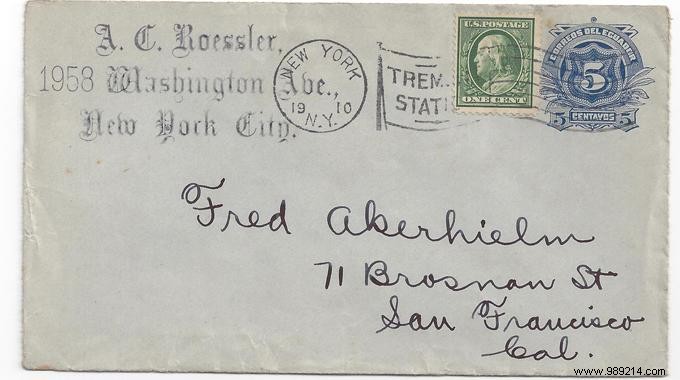 A. C. Roessler,
1958 Washington Ave.,
New York City.
NEW YORK
19 10
N.Y.
TREM
STATI
U.S. POSTAGE
ONE CENT
CORREOS DEL ECUADOR
5
5 CENTAVOS 5
Fred Akerhielm
71 Brosnan St
San Francisco
Cal.
www.989214.com